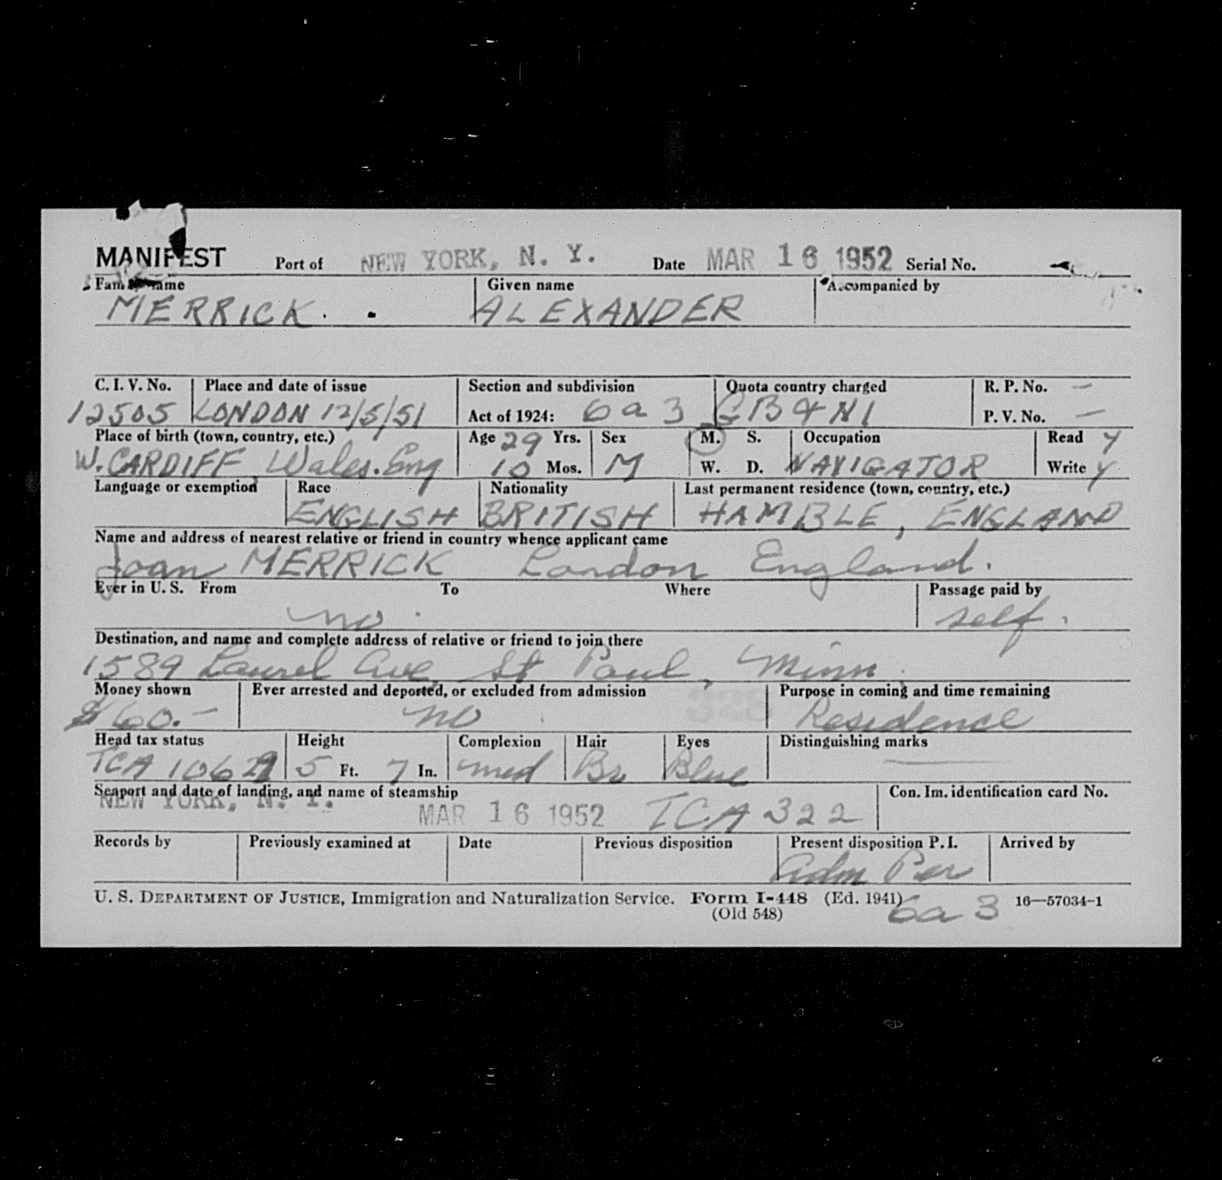 MANIFEST Port of NEW YORK, N. Y. Date MAR 16 1952 Serial No.
Family name Given name Accompanied by
MERRICK. ALEXANDER
C. I. V. No. Place and date of issue Section and subdivision Quota country charged R. P. No. —
12505 LONDON 12/5/51 Act of 1924: 6 a 3 GB & NI P. V. No. —
Place of birth (town, country, etc.) Age 29 Yrs. Sex M. S. Occupation Read y
W. CARDIFF Wales. Eng 10 Mos. M W. D. NAVIGATOR Write y
Language or exemption Race Nationality Last permanent residence (town, country, etc.)
ENGLISH BRITISH HAMBLE, ENGLAND
Name and address of nearest relative or friend in country whence applicant came
Joan MERRICK London England.
Ever in U. S. From To Where Passage paid by
no. self.
Destination, and name and complete address of relative or friend to join there
1589 Laurel Ave, St Paul, Minn.
Money shown Ever arrested and deported, or excluded from admission Purpose in coming and time remaining
$60.— no Residence
Head tax status Height Complexion Hair Eyes Distinguishing marks
TCA 5 Ft. 7 In. med Br Blue —
Seaport and date of landing, and name of steamship Con. Im. identification card No.
NEW YORK, N. Y. MAR 16 1952 TCA 322
Records by Previously examined at Date Previous disposition Present disposition P. I. Arrived by
adm Per
U. S. DEPARTMENT OF JUSTICE, Immigration and Naturalization Service. Form I-448 (Ed. 1941) 16—57034-1
(Old 548) 6a 3